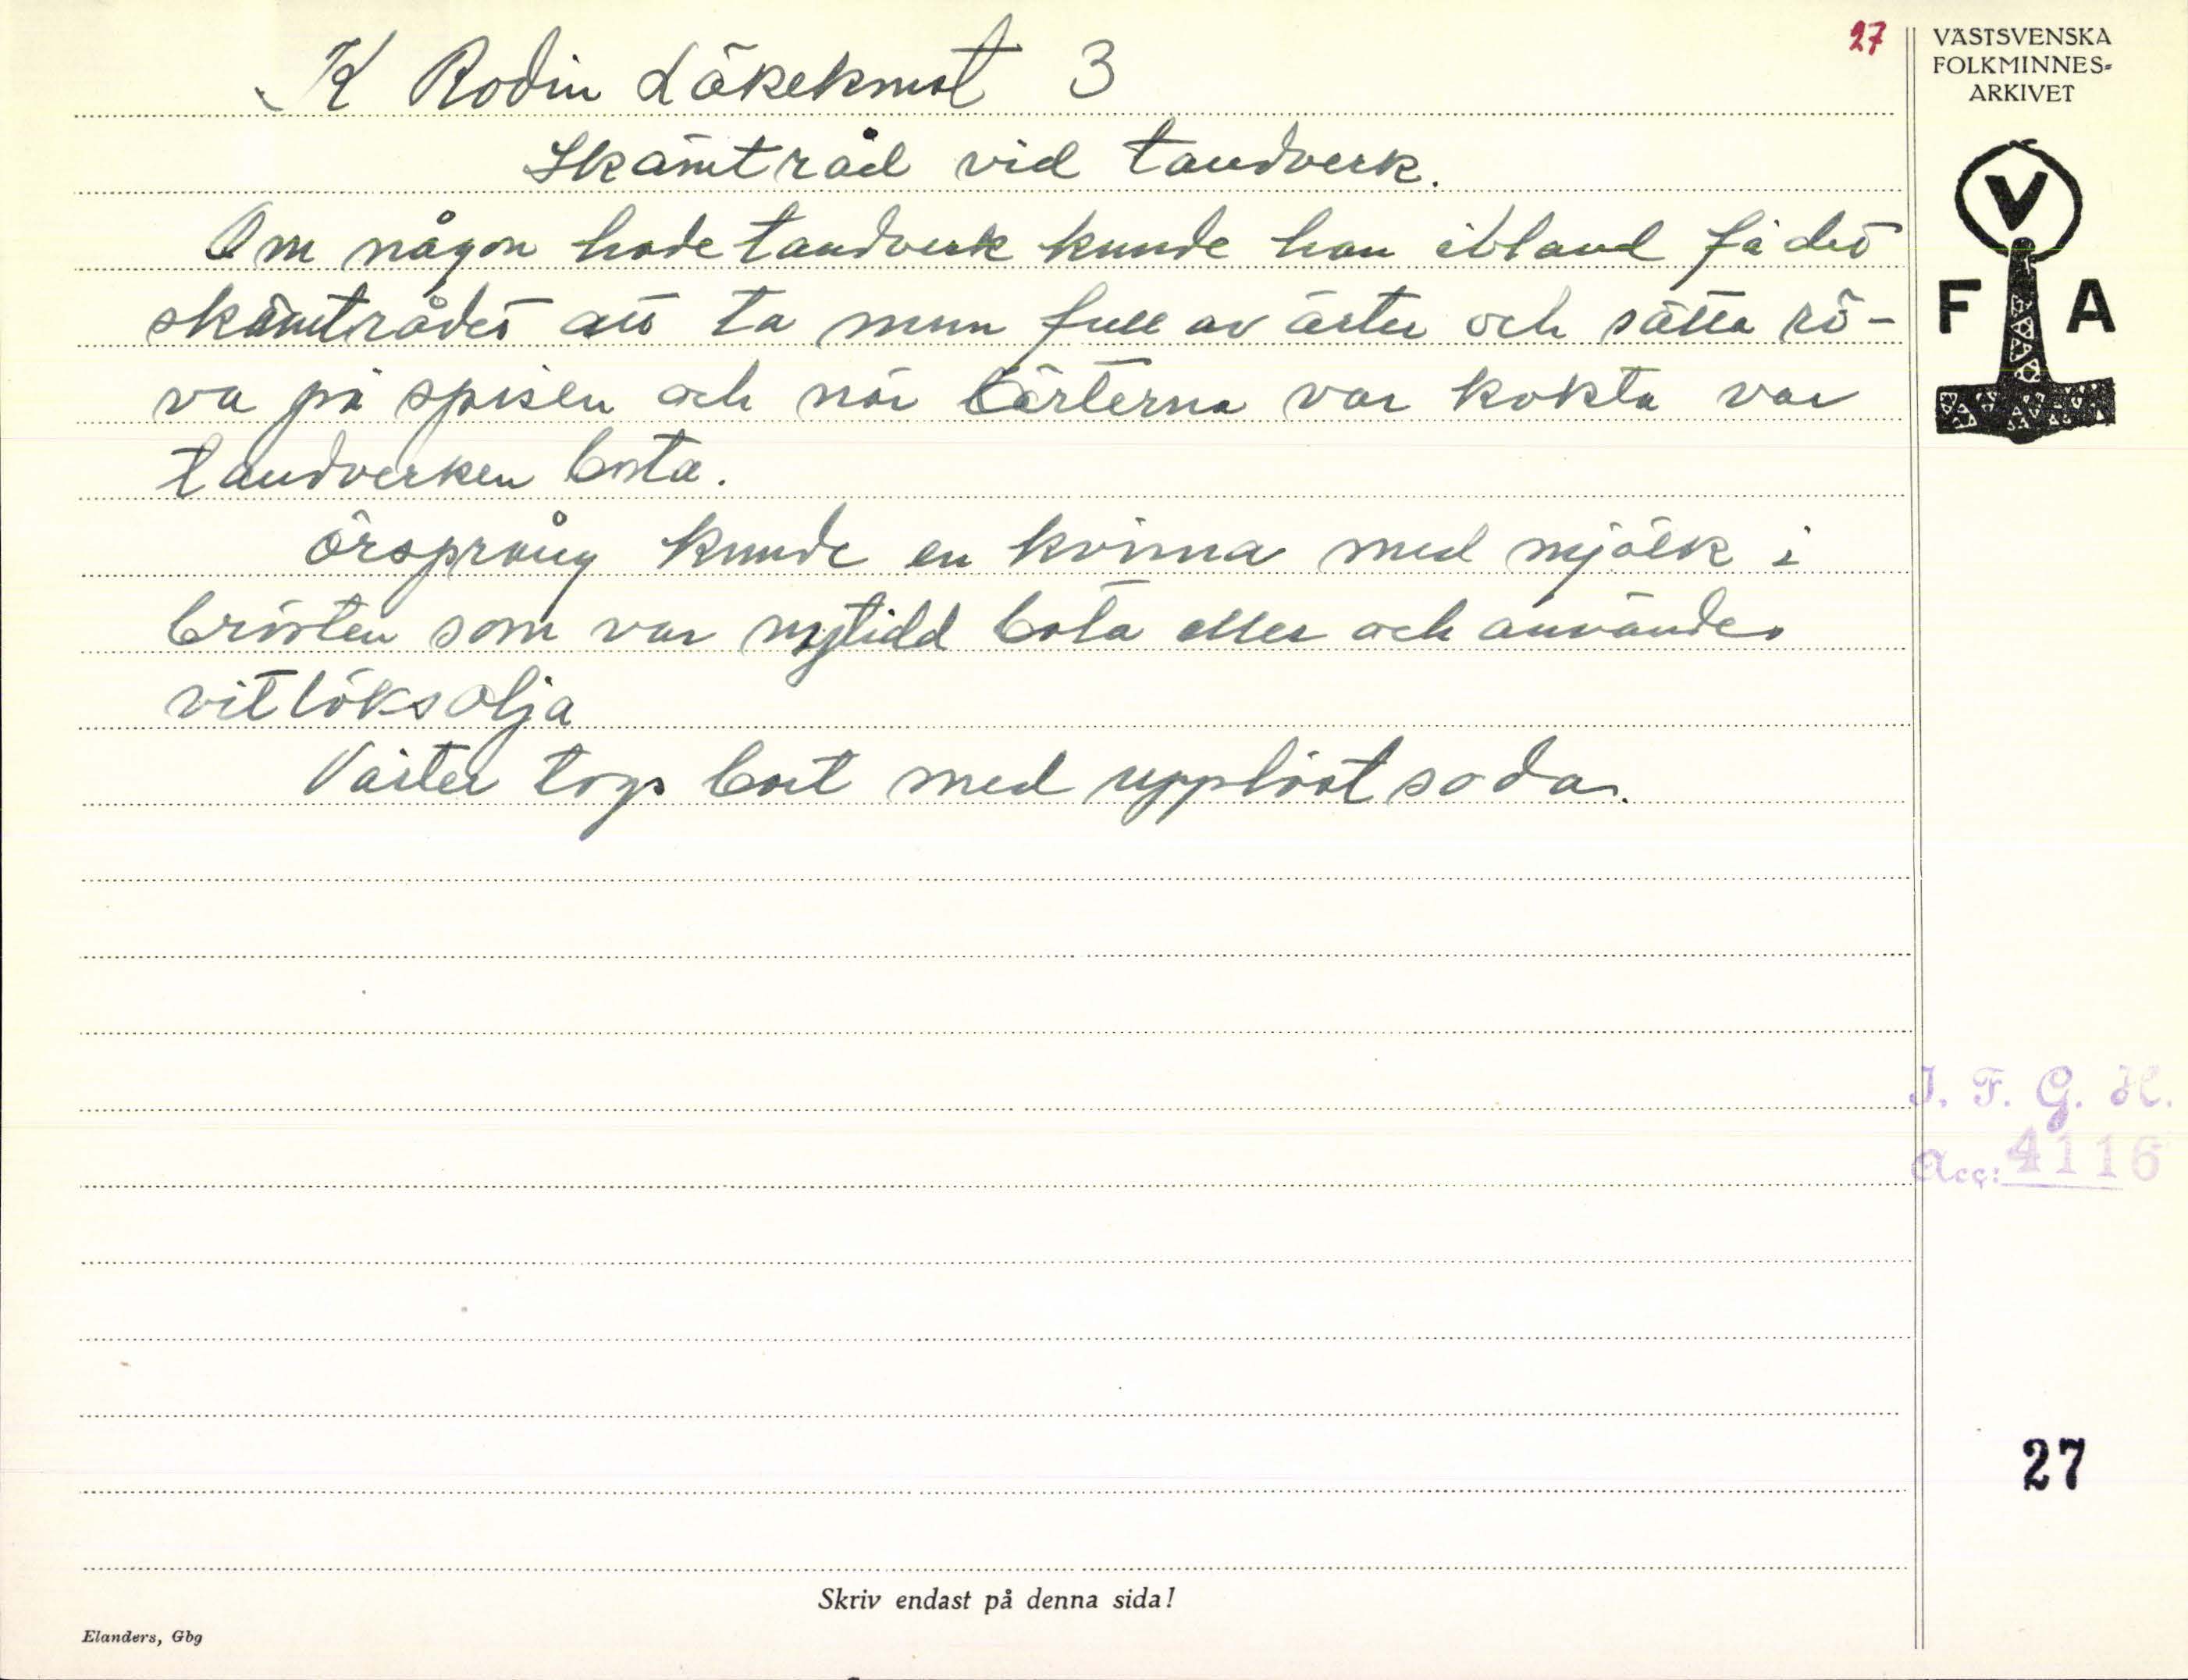 27
K Rodin Läkekonst 3
Skämtråd vid tandverk.
Om någon hade tandverk kunde han ibland få det
skämtrådet att ta mun full av ärter och sätta rö-
va på spisen och när ärterna var kokta var
tandverken borta.
Örsprång kunde en kvinna med mjölk i
brösten som var bota eller och användes
vitlöksolja
Vårter togs bort med upplöst soda.
VÄSTSVENSKA
FOLKMINNES-
ARKIVET
V
F A
I. F. G. H.
Acc: 4116
27
Skriv endast på denna sida!
Elanders, Gbg